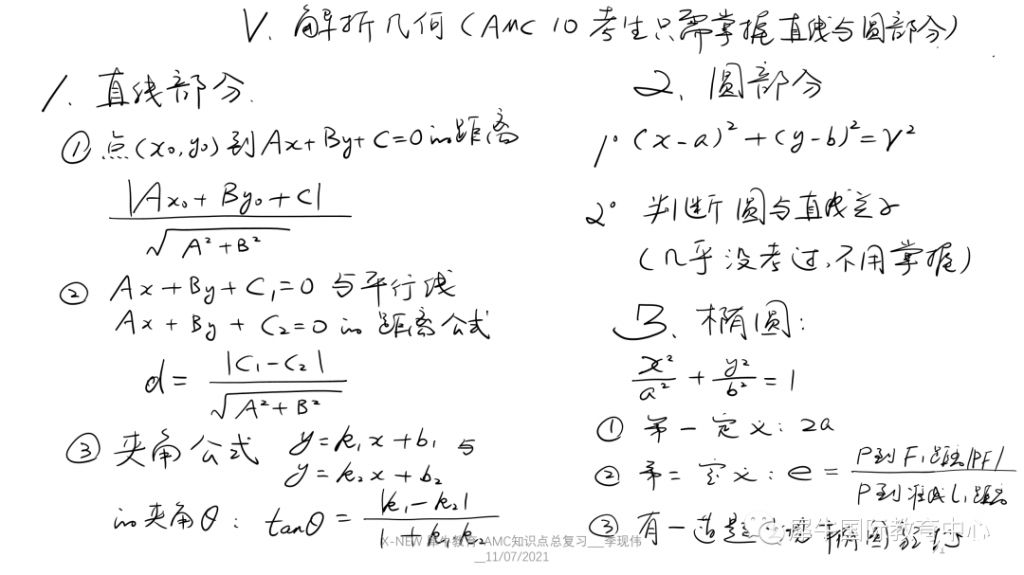 V. 解析几何(AMC 10 考生只需掌握直线与圆部分)
1. 直线部分.
① 点(x₀,y₀)到Ax+By+C=0的距离
|Ax₀+By₀+C|
√A²+B²
② Ax+By+C₁=0与平行线
Ax+By+C₂=0的距离公式
d= |C₁-C₂|
√A²+B²
③ 夹角公式 y=k₁x+b₁与
y=k₂x+b₂
的夹角θ: tanθ= |k₁-k₂|
1+k₁k₂
2. 圆部分
1° (x-a)²+(y-b)²=r²
2° 判断圆与直线
(几乎没考过,不用掌握)
3. 椭圆:
x²/a² + y²/b² =1
① 第一定义: 2a
② 第二定义: e= P到F₁距离|PF|
P到准线l₁距离
③ 有一道题 椭圆
犀牛国际教育中心
X-NEW 犀牛教育 AMC知识点总复习__李现伟
__11/07/2021